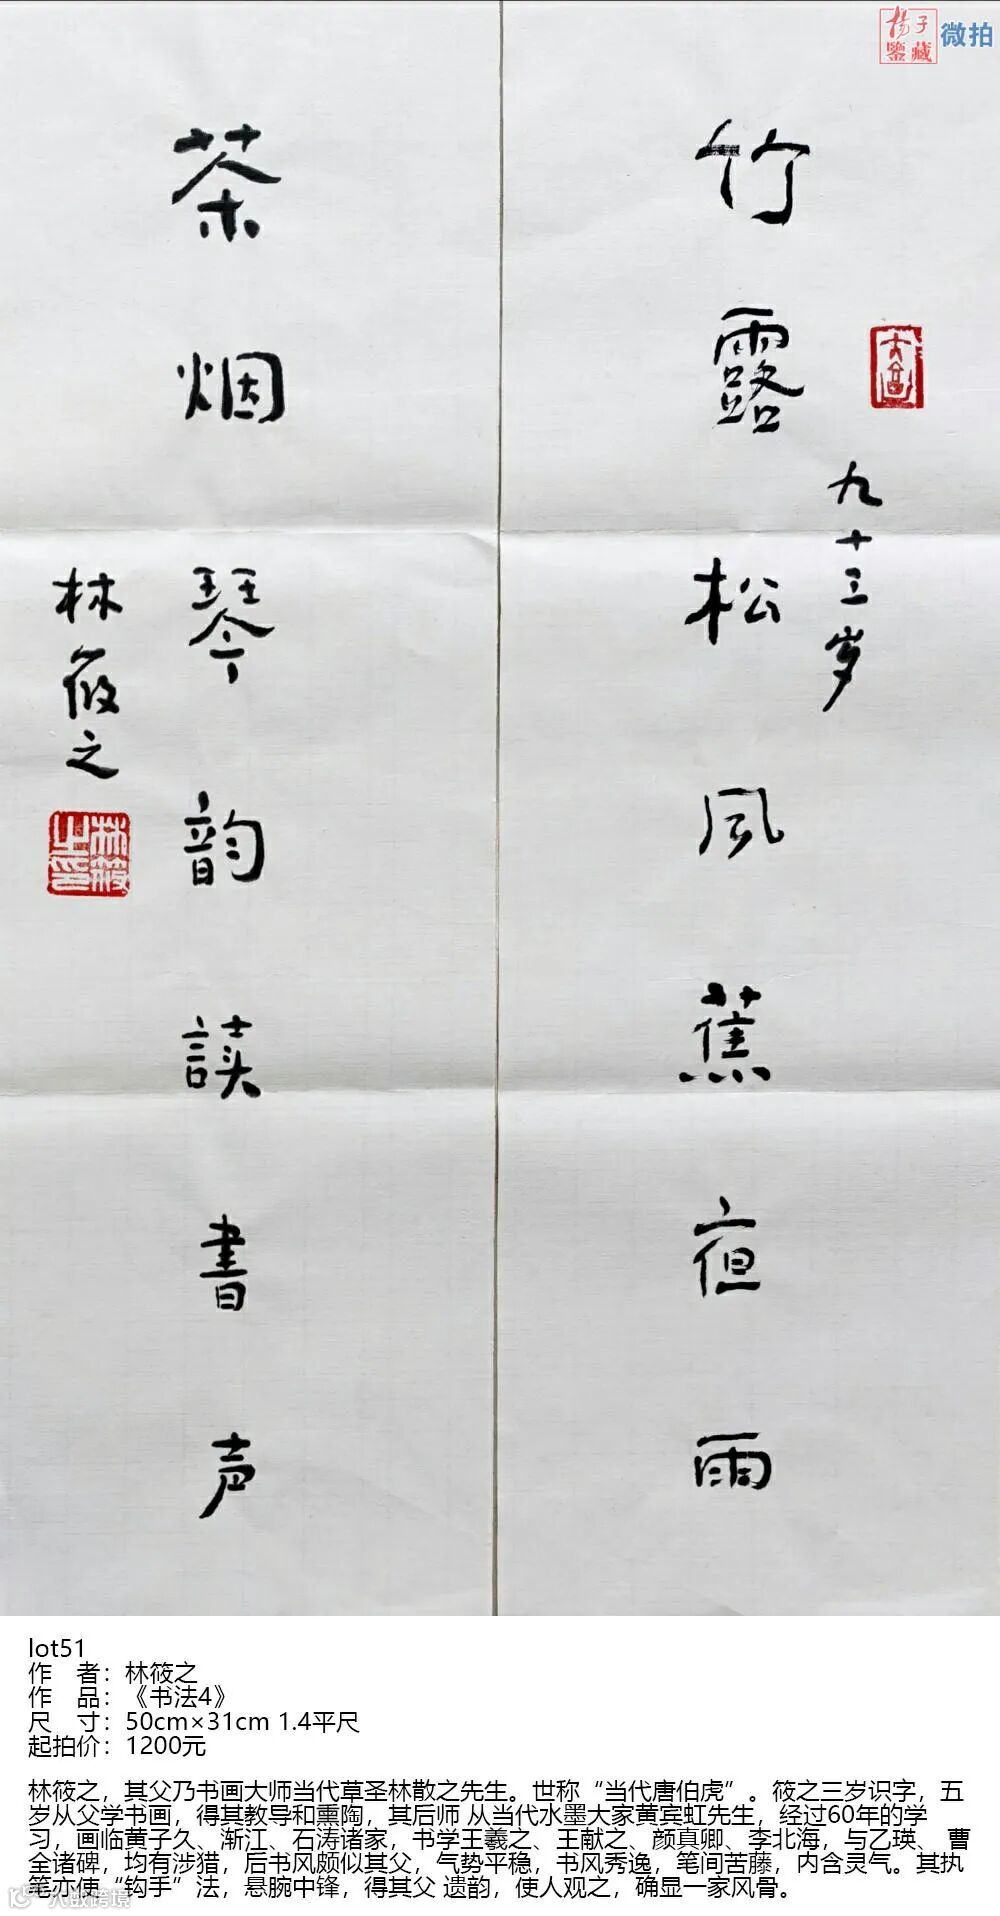 杨子
鉴藏
微拍
竹露松风蕉夜雨
九十三岁
茶烟琴韵読書声
林筱之
林筱之印
lot51
作 者：林筱之
作 品：《书法4》
尺 寸：50cm×31cm 1.4平尺
起拍价：1200元
林筱之，其父乃书画大师当代草圣林散之先生。世称“当代唐伯虎”。筱之三岁识字，五
岁从父学书画，得其教导和熏陶，其后师 从当代水墨大家黄宾虹先生，经过60年的学
习，画临黄子久、渐江、石涛诸家，书学王羲之、王献之、颜真卿、李北海，与乙瑛、曹
全诸碑，均有涉猎，后书风颇似其父，气势平稳，书风秀逸，笔间苦藤，内含灵气。其执
笔亦使“钩手”法，悬腕中锋，得其父 遗韵，使人观之，确显一家风骨。
大数跨境